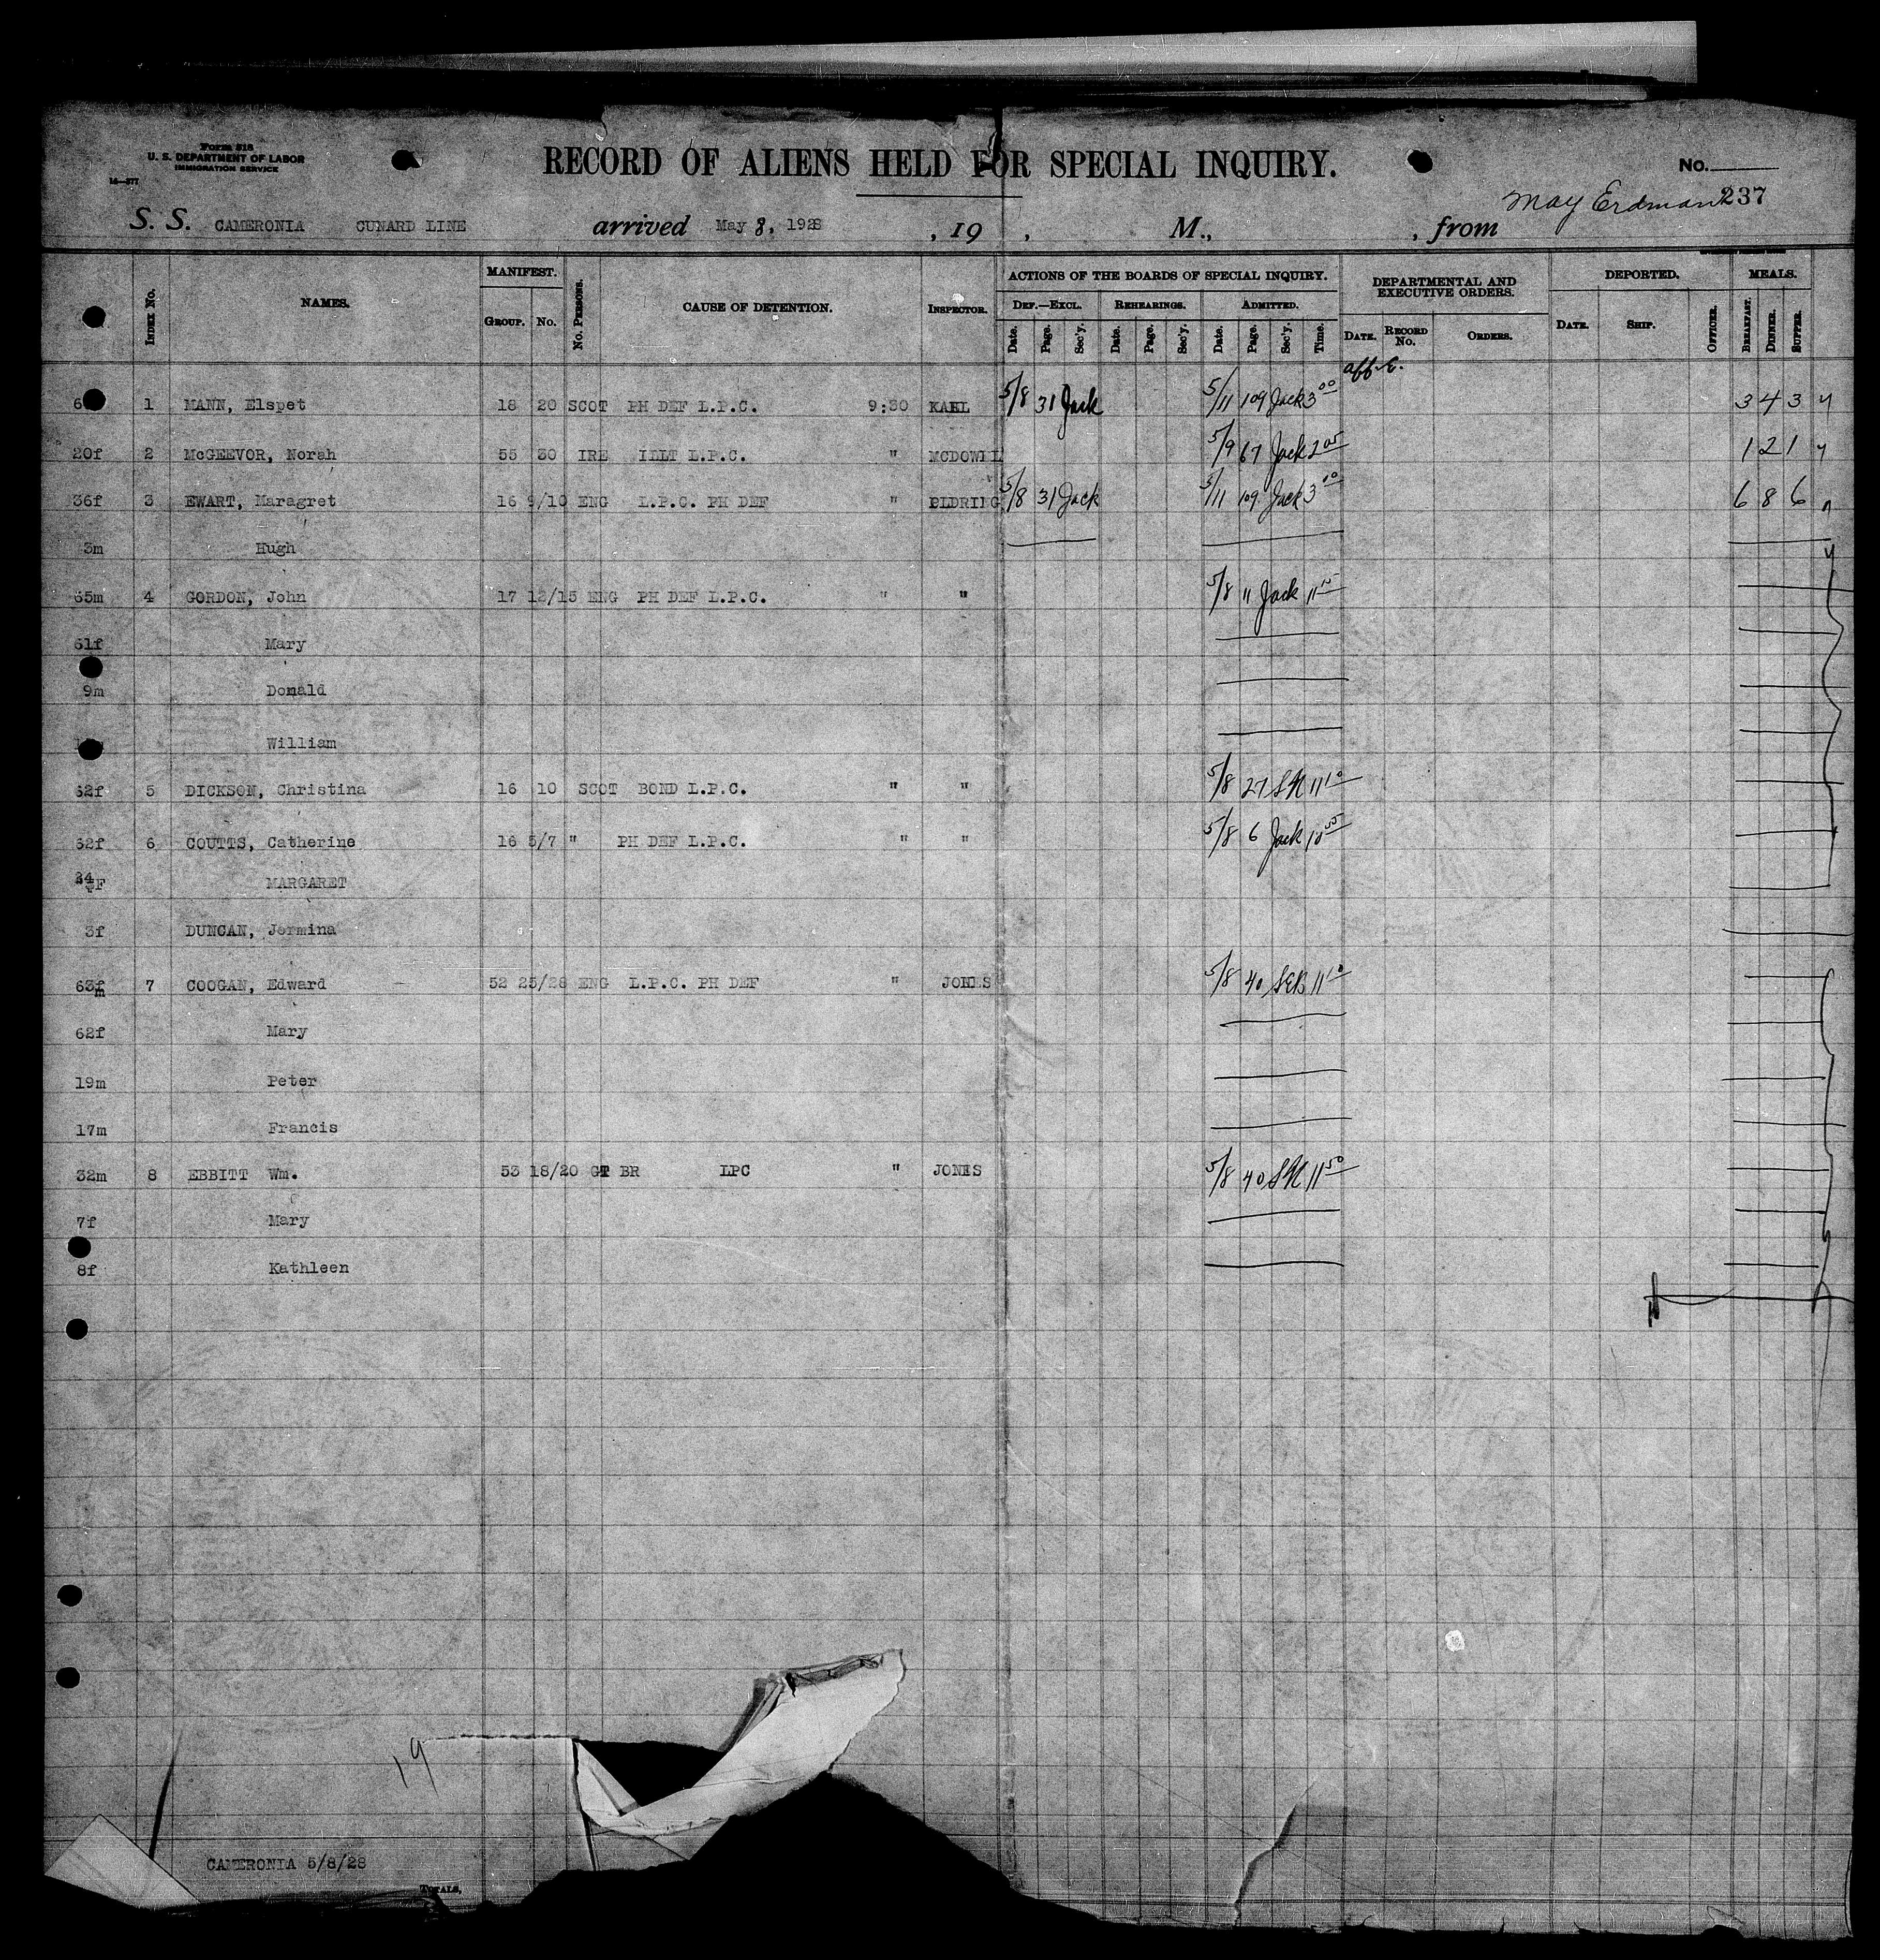 Form 518
U. S. DEPARTMENT OF LABOR
IMMIGRATION SERVICE
14—377
RECORD OF ALIENS HELD FOR SPECIAL INQUIRY.
No.
May Erdman 237
S. S. CAMERONIA CUNARD LINE arrived May 8, 1928 , 19 , M., , from
INDEX No. NAMES. MANIFEST. GROUP. No. No. PERSONS. CAUSE OF DETENTION. INSPECTOR. ACTIONS OF THE BOARDS OF SPECIAL INQUIRY. DEF.—EXCL. Date. Page. Sec'y. REHEARINGS. Date. Page. Sec'y. ADMITTED. Date. Page. Sec'y. Time. DEPARTMENTAL AND EXECUTIVE ORDERS. DATE. RECORD No. ORDERS. DEPORTED. DATE. SHIP. OFFICER. MEALS. BREAKFAST. DINNER. SUPPER.
1 MANN, Elspet 18 20 SCOT PH DEF L.P.C. 9:30 KAEL 5/8 31 Jack 5/11 109 Jack 3 00 3 4 3
20f 2 McGEEVOR, Norah 55 30 IRE IILT L.P.C. " MCDOWEL 5/9 67 Jack 2 05 1 2 1
36f 3 EWART, Maragret 16 9/10 ENG L.P.C. PH DEF " 5/8 31 Jack 5/11 109 Jack 3 00 6 8 6
3m Hugh
65m 4 GORDON, John 17 12/15 ENG PH DEF L.P.C. " " 5/8 11 Jack 11 15
61f Mary
9m Donald
William
62f 5 DICKSON, Christina 16 10 SCOT BOND L.P.C. " " 5/8 27 SM 11 10
62f 6 COUTTS, Catherine 16 5/7 " PH DEF L.P.C. " " 5/8 6 Jack 10 55
24F MARGARET
3f DUNCAN, Jermina
63m 7 COOGAN, Edward 52 25/28 ENG L.P.C. PH DEF " JONES 5/8 40 SEB 11 10
62f Mary
19m Peter
17m Francis
32m 8 EBBITT Wm. 53 18/20 GT BR LPC " JONES 5/8 40 SM 11 50
7f Mary
8f Kathleen
19
CAMERONIA 5/8/28
TOTALS,